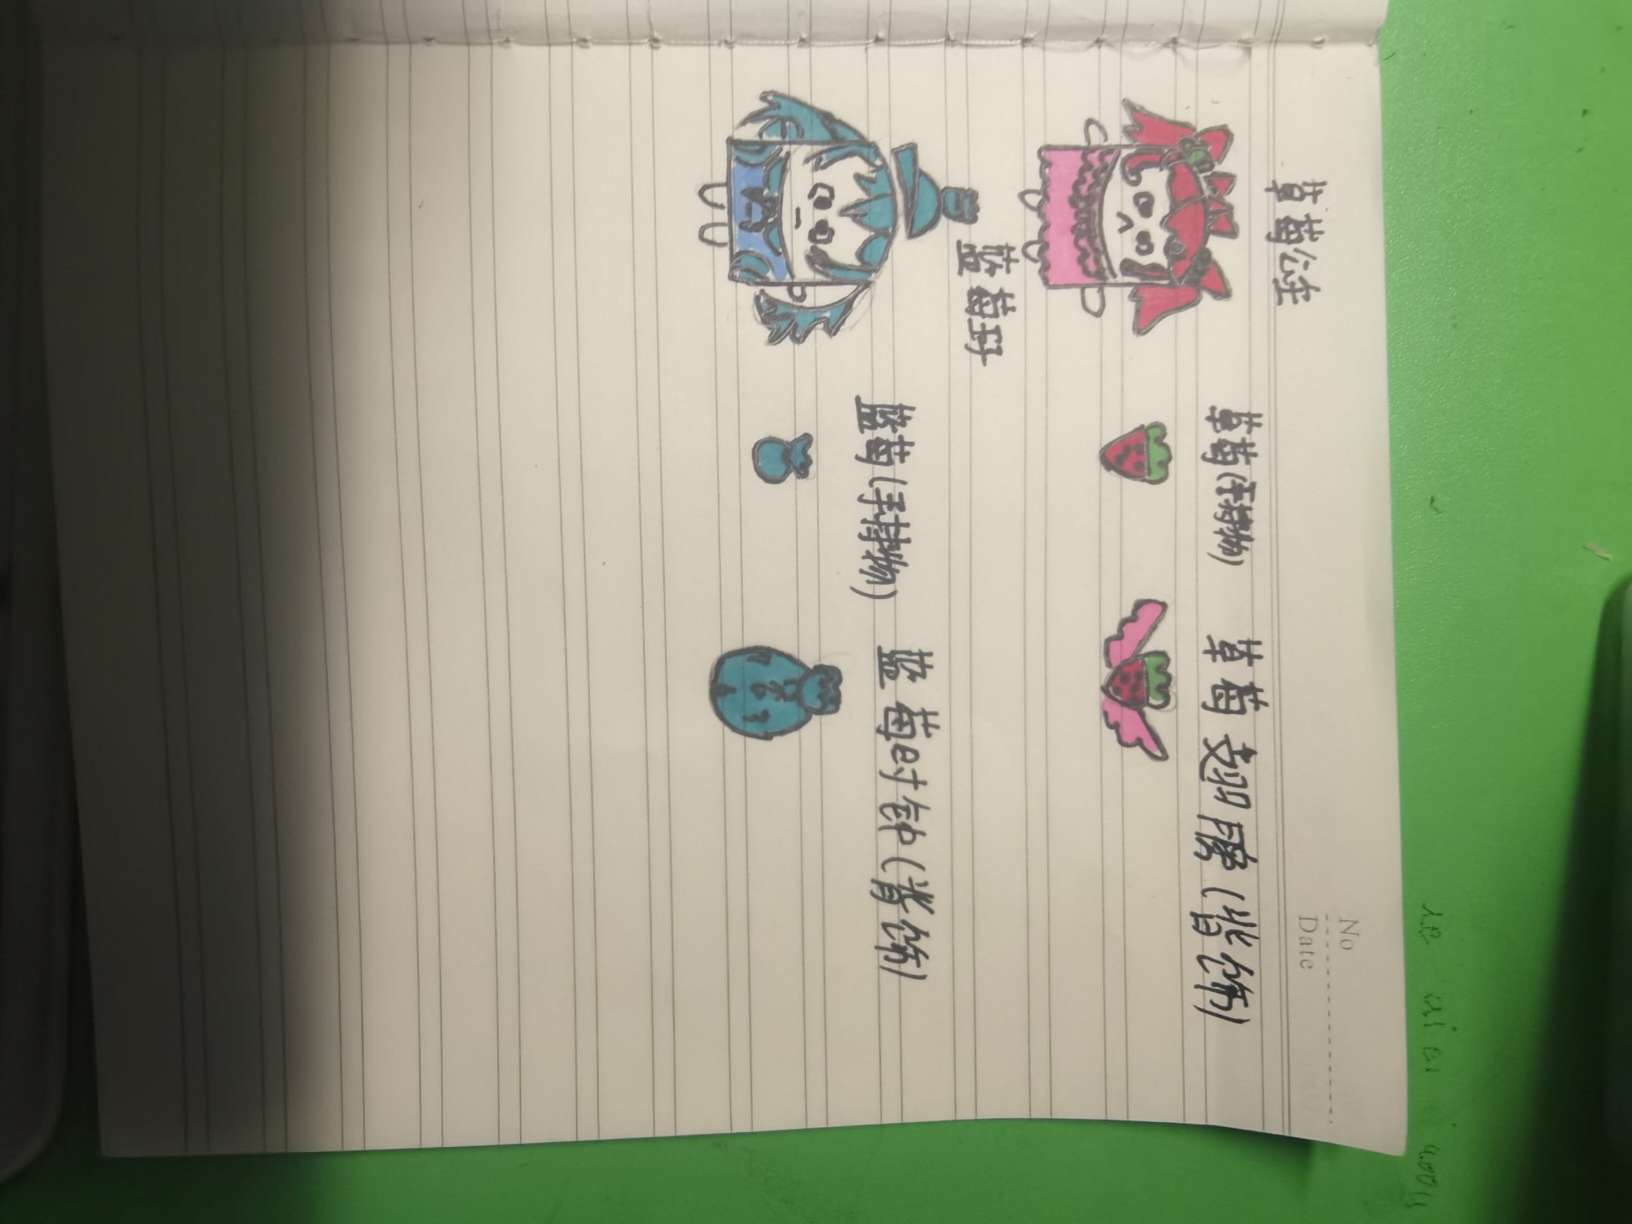 No
Date
草莓公主
草莓(手持物)
草莓翅膀(背饰)
蓝莓
蓝莓(手持物)
蓝莓时钟(背饰)